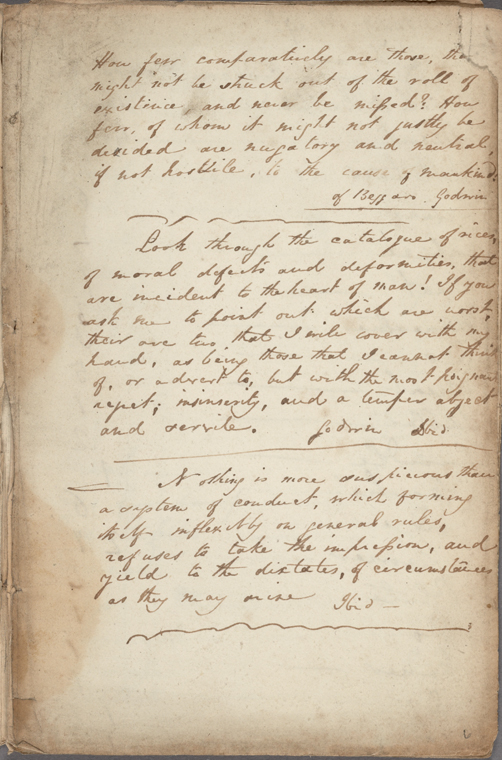 How few comparatively are those, that
might not be struck out of the roll of
existence, and never be missed? How
few, of whom it might not justly be
decided are nugatory and neutral,
if not hostile, to the cause of mankind?
of Beggars. Godwin
Look through the catalogue of vices,
of moral defects and deformities, that
are incident to the heart of man! If you
ask me to point out which are worst,
their are two, that I will cover with my
hand, as being those that I cannot think
of, or advert to, but with the most poignant
regret; insincerity, and a temper abject
and servile. Godwin Ibid
Nothing is more suspicious than
a system of conduct, which forming
itself inflexibly on general rules,
refuses to take the impression, and
yield to the dictates, of circumstances
as they may arise Ibid —